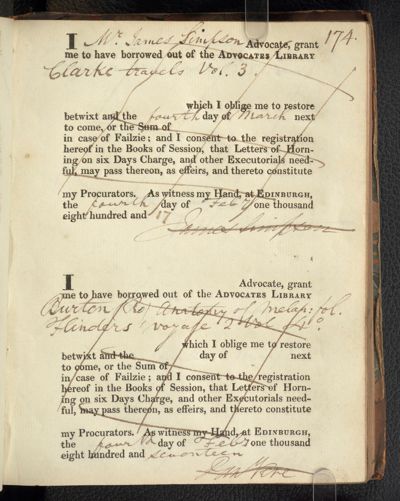 174.
I Mr. James Simpson Advocate, grant
me to have borrowed out of the ADVOCATES LIBRARY
Clarke travels Vol. 3.
which I oblige me to restore
betwixt and the fourth day of March next
to come, or the Sum of
in case of Failzie; and I consent to the registration
hereof in the Books of Session, that Letters of Horn-
ing on six Days Charge, and other Executorials need-
ful, may pass thereon, as effeirs, and thereto constitute
my Procurators. As witness my Hand, at EDINBURGH,
the fourth day of Feby one thousand
eight hundred and 17
James Simpson
I Advocate, grant
me to have borrowed out of the ADVOCATES LIBRARY
Burton (Ro) Anatomy of Melan: fol.
Flinders' voyage 2 Vol. 4to.
which I oblige me to restore
betwixt and the day of next
to come, or the Sum of
in case of Failzie; and I consent to the registration
hereof in the Books of Session, that Letters of Horn-
ing on six Days Charge, and other Executorials need-
ful, may pass thereon, as effeirs, and thereto constitute
my Procurators. As witness my Hand, at EDINBURGH,
the fourth day of Feby one thousand
eight hundred and seventeen